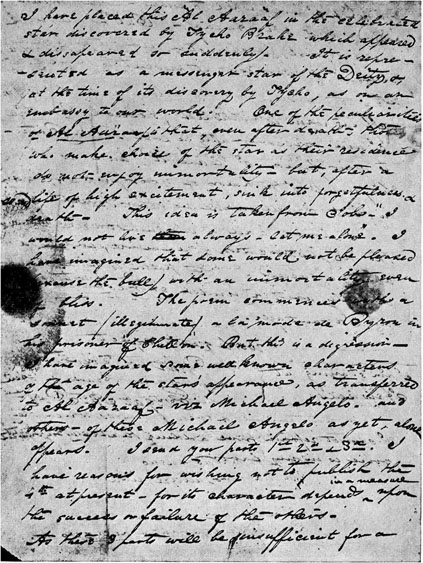 I have placed this Al Aaraaf in the celebrated
star discovered by Tycho Brahe which appeared
& disappeared so suddenly. It is repre-
-sented as a messenger star of the Deity, &,
at the time of its discovery by Tycho, as on an
embassy to our world. One of the peculiarities
of Al Aaraaf is that, even after death, those
who make choice of the star as their residence
do not enjoy immortality - but, after a
life of high excitement, sink into forgetfulness &
death - This idea is taken from Job - "I
would not live always - let me alone". I
have imagined that some would not be pleased
excuse the bull with an immortality even
this. The poem commences with a
sonnet (illegitimate) a la mode de Byron in
his prisoner of Chillon. But this is a digression -
I have imagined some well known characters
of the age of the stars appearance, as transferred
to Al Aaraaf - viz Michael Angelo - and
others - of these Michael Angelo as yet, alone
appears. I send you parts 1st 2d & 3d. I
have reasons for wishing not to publish the
4th at present - for its character depends in a measure upon
the success or failure of the others -
As these 3 parts will be insufficient for a